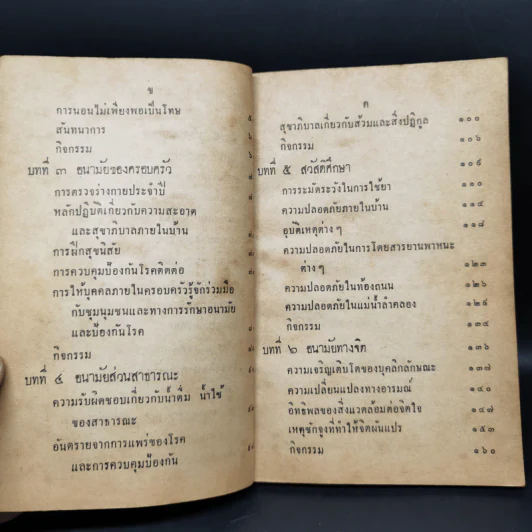 ข
การนอนไม่เพียงพอเป็นโทษ
สันทนาการ
กิจกรรม
บทที่ ๓ อนามัยของครอบครัว
การตรวจร่างกายประจำปี
หลักปฏิบัติเกี่ยวกับความสะอาด
และสุขาภิบาลภายในบ้าน
การฝึกสุขนิสัย
การควบคุมป้องกันโรคติดต่อ
การให้บุคคลภายในครอบครัวรู้จักร่วมมือ
กับชุมนุมชนและทางการรักษาอนามัย
และป้องกันโรค
กิจกรรม
บทที่ ๔ อนามัยส่วนสาธารณะ
ความรับผิดชอบเกี่ยวกับน้ำดื่ม น้ำใช้
ของสาธารณะ
อันตรายจากการแพร่ของโรค
และการควบคุมป้องกัน
ค
สุขาภิบาลเกี่ยวกับส้วมและสิ่งปฏิกูล ๑๐๐
กิจกรรม ๑๐๖
บทที่ ๕ สวัสดิศึกษา
การระมัดระวังในการใช้ยา ๑๑๐
ความปลอดภัยภายในบ้าน ๑๑๔
อุบัติเหตุต่าง ๆ ๑๑๘
ความปลอดภัยในการโดยสารยานพาหนะ
ต่าง ๆ ๑๒๓
ความปลอดภัยในท้องถนน
ความปลอดภัยในแม่น้ำลำคลอง
กิจกรรม ๑๓๔
บทที่ ๖ อนามัยทางจิต ๑๓๖
ความเจริญเติบโตของบุคลิกลักษณะ ๑๓๗
ความเปลี่ยนแปลงทางอารมณ์ ๑๔๐
อิทธิพลของสิ่งแวดล้อมต่อจิตใจ ๑๔๗
เหตุชักจูงที่ทำให้จิตผันแปร ๑๕๓
กิจกรรม ๑๖๐